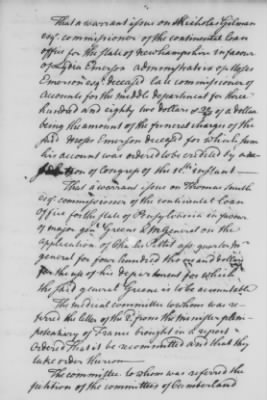 That a warrant issue on Nicholas Gilman
esqr. commissioner of the continental loan
office for the state of newhampshire in favour
of Lydia Emerson administratrix of Moses
Emerson esqr. deceased late commissioner of
accounts for the middle department for three
hundred and eighty two dollars & of a dollar
being the amount of the funeral charges of the
said Moses Emerson deceased for which sum
his account was ordered to be credited by a
of Congress of the instant
That a warrant issue on Thomas Smith
esqr. commissioner of the continental loan
office for the state of Pensylvania in favour
of major genl Greene general on the
application of Pettit asst quarter mr
general for four hundred thousand dollars
for the use of his department for which
the said general Greene is to be accountable
The medical committee to whom was re-
ferred the letter of the 2 from the minister pleni-
potentiary of France brought in a report
Ordered That it be recommitted and that they
take order thereon
The committee to whom was referred the
petition of the committees of Cumberland